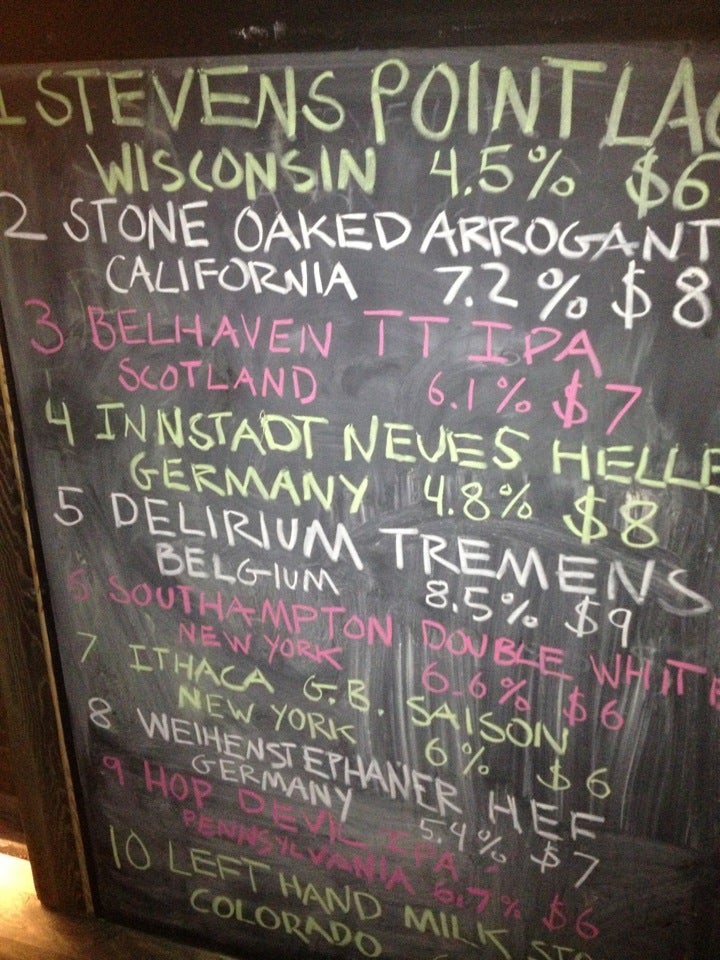 1 STEVENS POINT LAG
WISCONSIN 4.5% $6
2 STONE OAKED ARROGANT
CALIFORNIA 7.2% $8
3 BELHAVEN TT IPA
SCOTLAND 6.1% $7
4 INNSTADT NEUES HELLE
GERMANY 4.8% $8
5 DELIRIUM TREMENS
BELGIUM 8.5% $9
6 SOUTHAMPTON DOUBLE WHITE
NEW YORK 6.6% $6
7 ITHACA G.B. SAISON
NEW YORK 6% $6
8 WEIHENSTEPHANER HEF
GERMANY 5.4% $7
9 HOP DEVIL IPA
PENNSYLVANIA 6.7% $6
10 LEFT HAND MILK STO
COLORADO